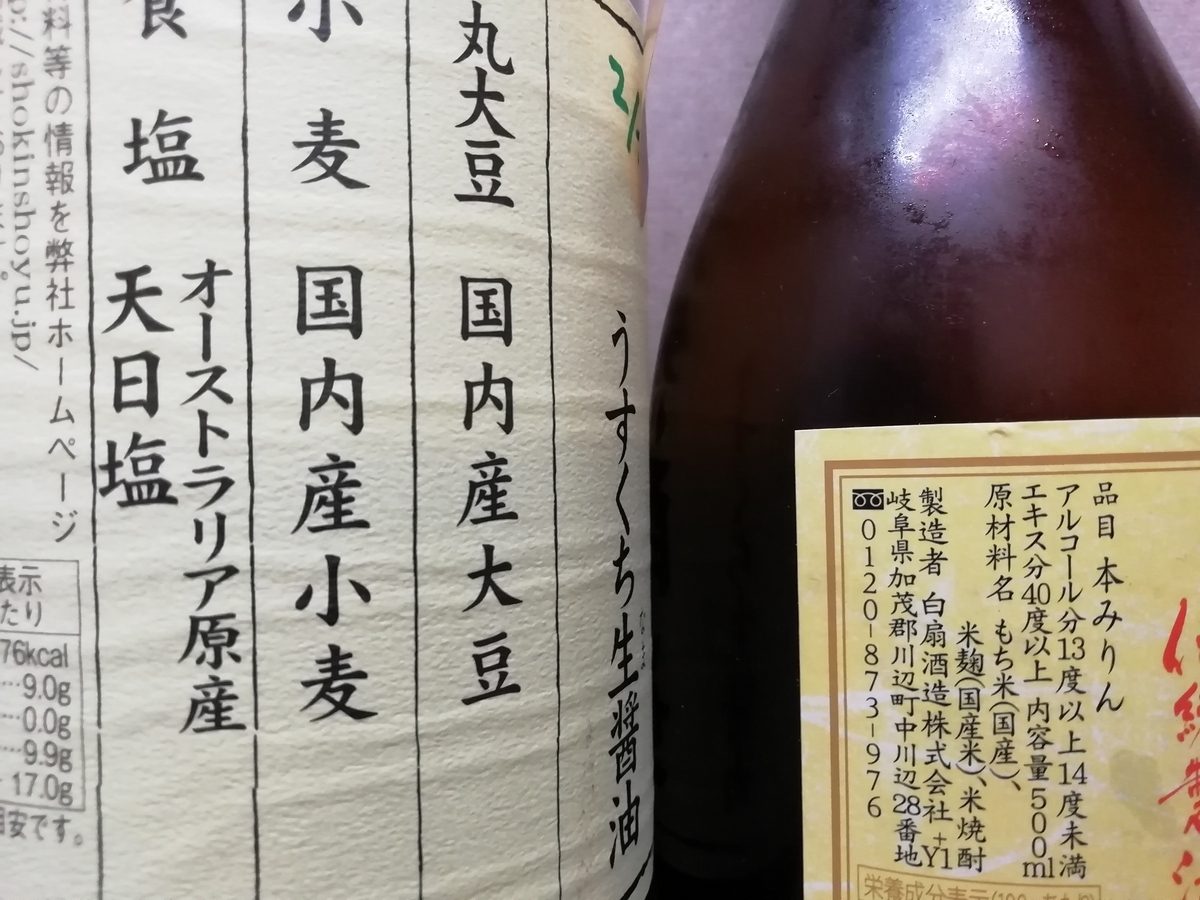 うすくち生醤油
丸大豆 国内産大豆
小麦 国内産小麦
食塩 オーストラリア原産
天日塩
料等の情報を弊社ホームページ
p://shokinshoyu.jp/
表示
たり
76kcal
…9.0g
…0.0g
…9.9g
17.0g
目安です。
品目 本みりん
アルコール分13度以上14度未満
エキス分40度以上 内容量500ml
原材料名 もち米(国産)、
米麹(国産米)、米焼酎
製造者 白扇酒造株式会社 +Y1
岐阜県加茂郡川辺町中川辺28番地
0120-873-976